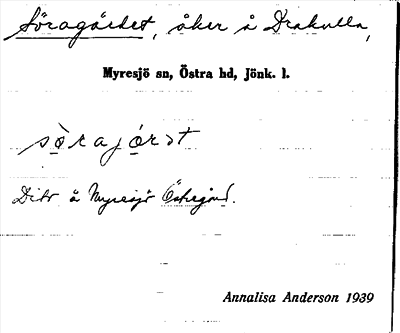 Söragärdet, åker å Drakulla,
Myresjö sn, Östra hd, Jönk. l.
sòrajǿrət
Dito å Myresjö Östergård.
Annalisa Anderson 1939